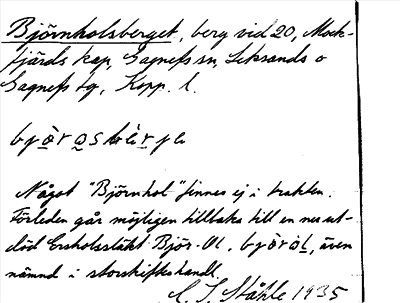 Björnholsberget, berg vid 20, Mock-
fjärds kap, Gagnefs sn, Leksands o
Gagnefs tg, Kopp. l.
Något "Björnhol" finnes ej i trakten.
Förleden går möjligen tillbaka till en nu ut-
död Ersholssläkt Björ-Ol, även
nämnd i storskifteshandl.
Ståhle 1935